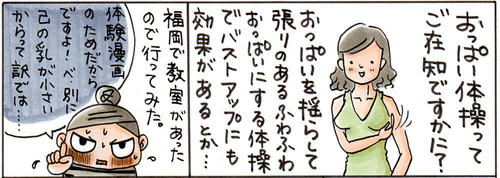 おっぱい体操って
ご存知ですかに?
おっぱいを揺らして
張りのあるふわふわ
おっぱいにする体操
でバストアップにも
効果があるとか…
福岡で教室があった
ので行ってみた。
体験漫画
のためだから
ですよ!べ、別に
己の乳が小さい
からって訳では……